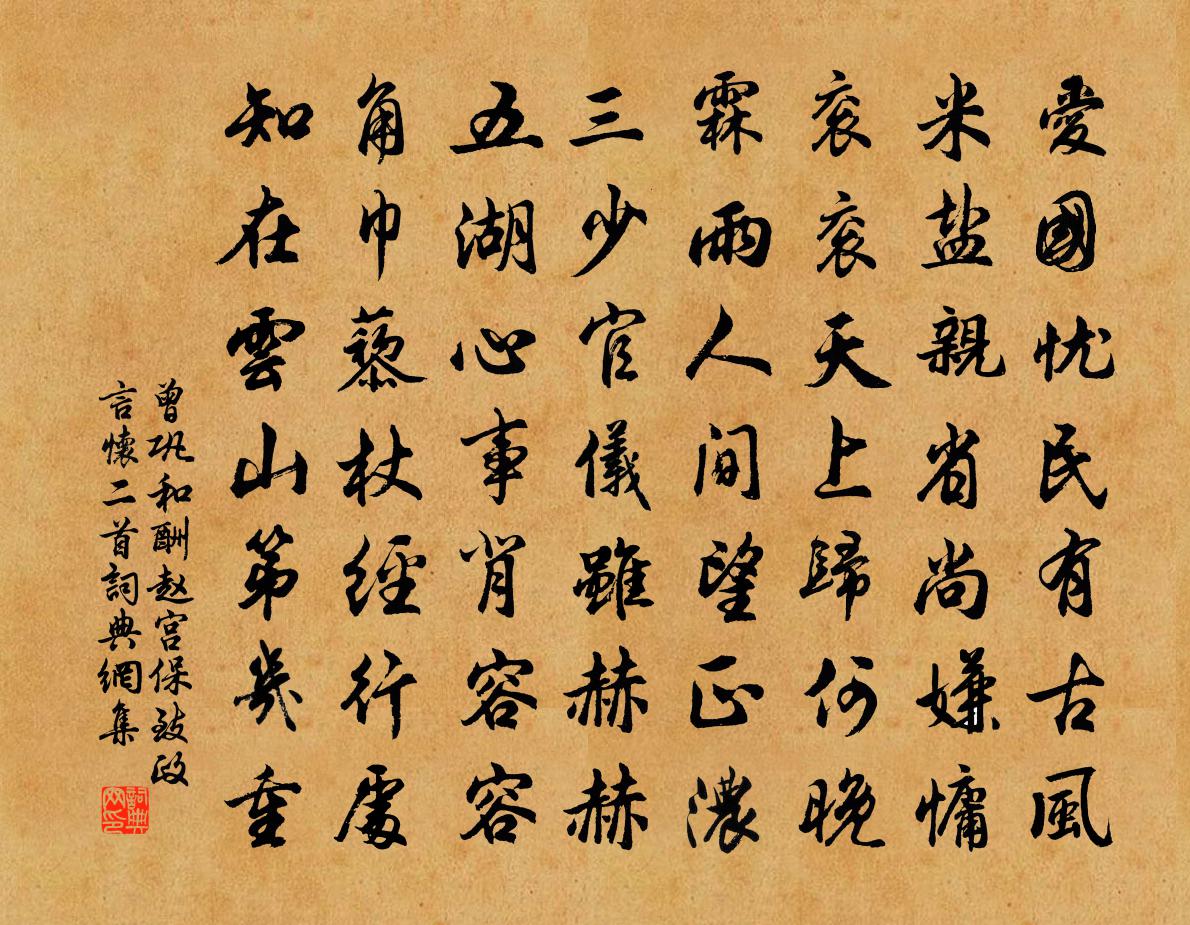 愛國忧民有古風
米盐親省尚嫌慵
衮衮天上歸何晚
霖雨人间望正濃
三少官儀雖赫赫
五湖心事肖容容
角巾藜杖經行處
知在雲山第幾重
曾巩和酬赵宫保致政
言懷二首詞典網集
詞典
网印